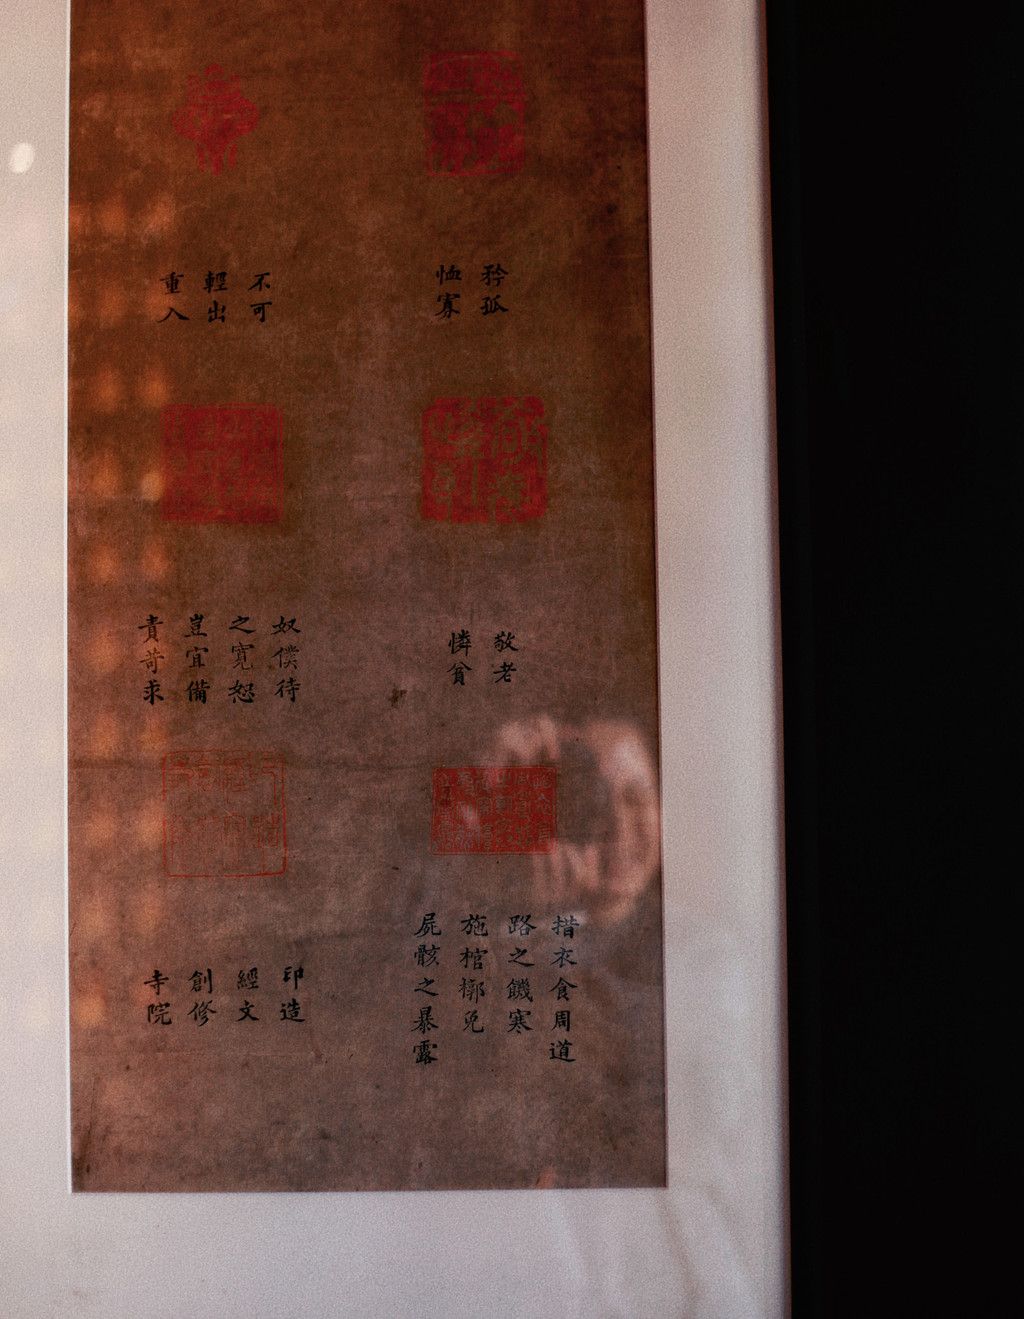 矜孤
恤寡
不可
輕出
重入
敬老
憐貧
奴僕待
之寬恕
豈宜備
責苛求
措衣食周道
路之饑寒
施棺槨免
屍骸之暴露
印造
經文
創修
寺院